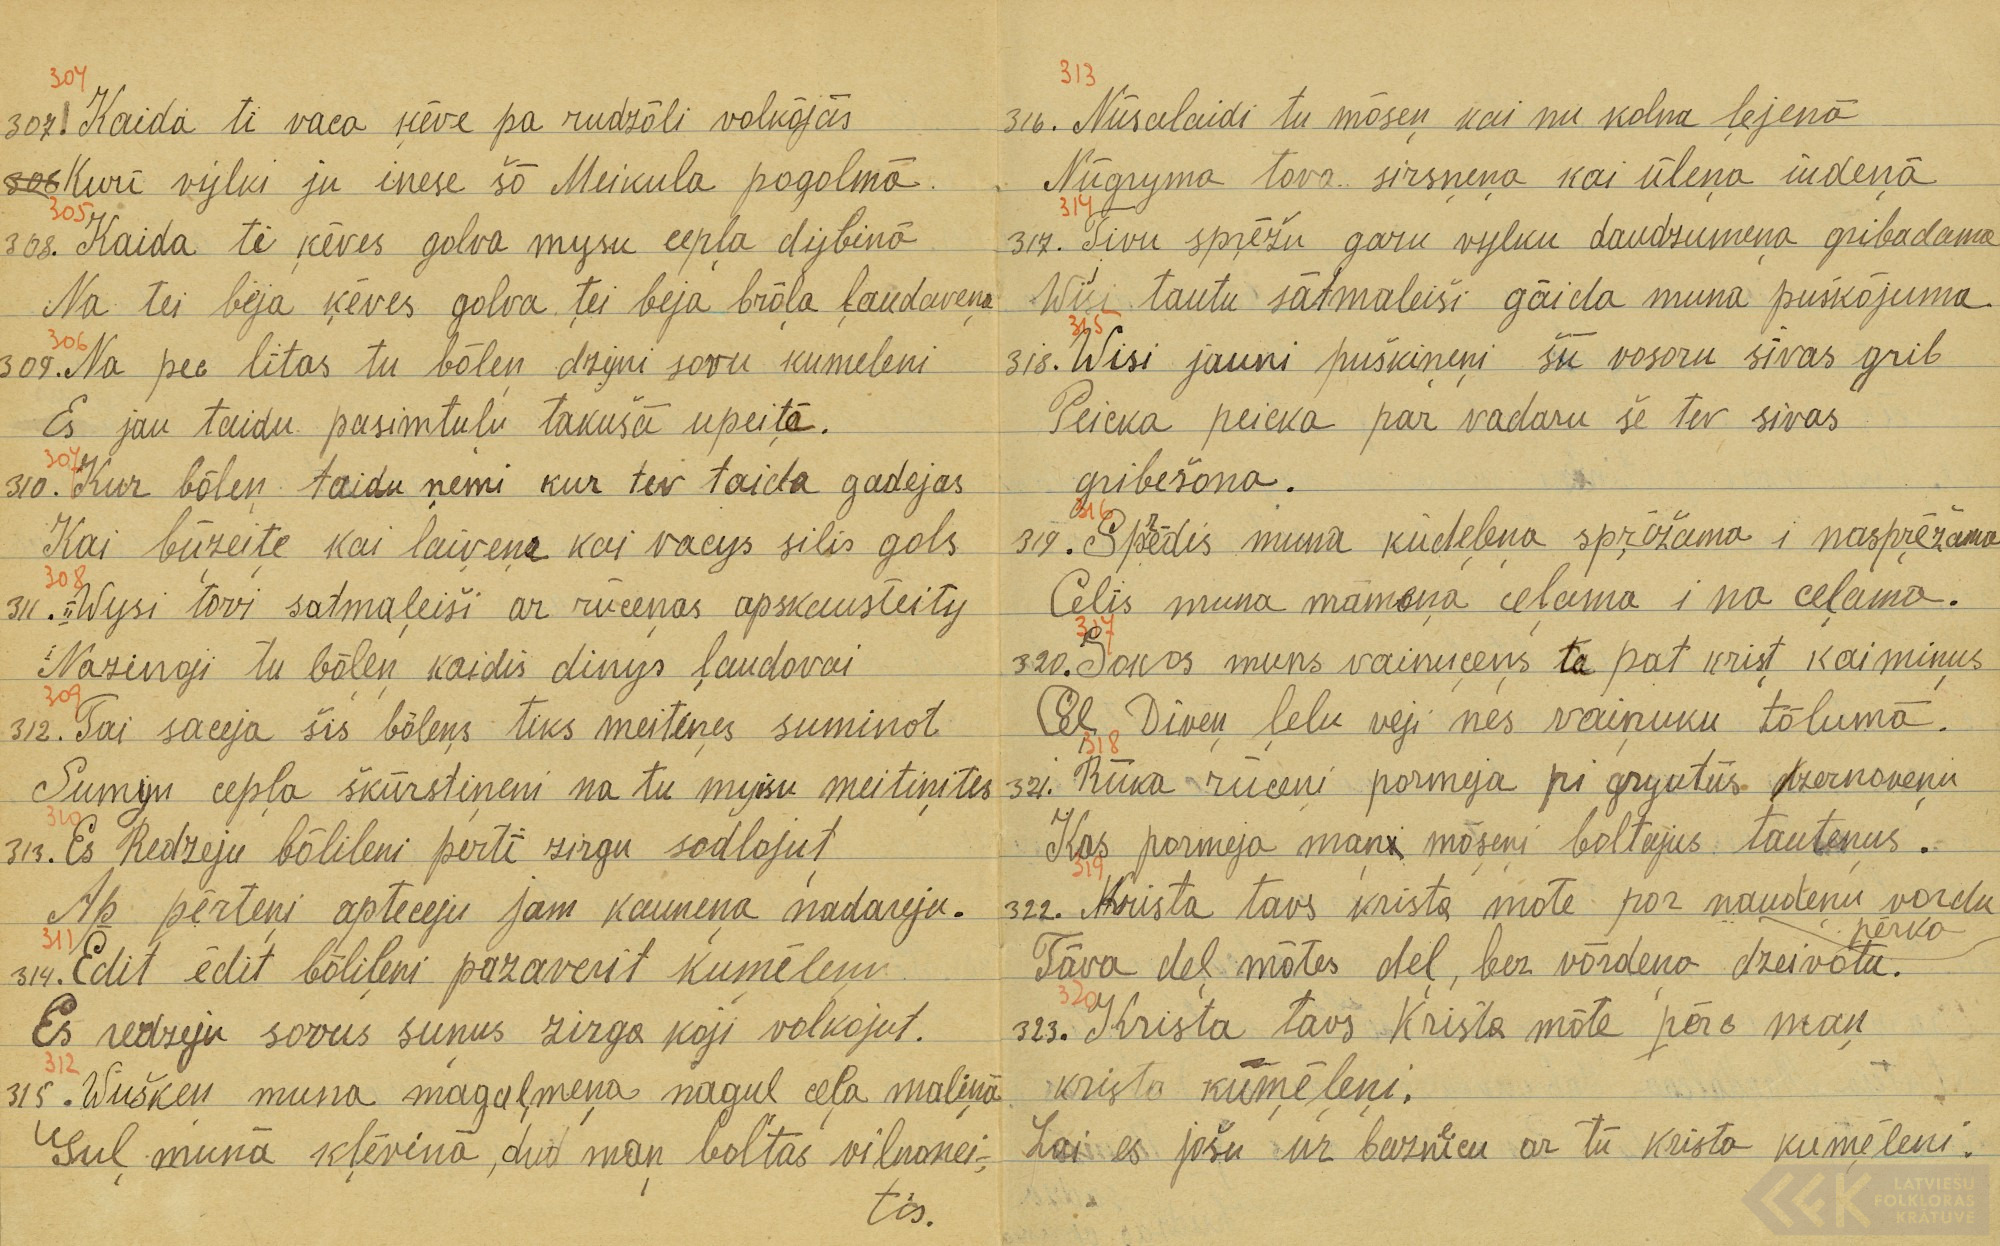 304
307. Kaida ti vaca ķēve pa rudzōli volkōjās
306 Kuri vylki ju inese šō Meikula pogolmā.
305
308. Kaida ti ķēves golva mysu cepļa dybinā
Na tei bēja ķēves golva tei beja brōļa ļaudaveņa
306
309. Na pec litas tu bōleņ dzyni sovu kumeleni
Es jau taidu pasimtulu takušā upeitā.
307
310. Kur bōleņ taidu ņēmi kur tev taida gadejas
Kai būzeite kai laiveņa kai vacys silis gols
308
311. Wysi tovi satmaļeiši ar rūceņas apskausteity
Nazingji tu bōleņ kaidis dinys ļaudovai
309
312. Tai saceja šis bōleņs tiks meiteņes suminot
Sumyn cepļa škūrstiņeni na tu mysu meitiņites
310
313. Es Redzeju bōlileni pertī zirgu sodlojut
Ap pērteņi apteceju jam kauneņa nadareju.
311
314. Ēdit ēdit bōliļeni pazaverit kumēleņu
Es redzeju sovus suņus zirga koji volkojut.
312
315. Wušķeņ muna magaļmeņa nagul ceļa maliņā
Guļ munā kļēvinā, dud maņ boltās vilnonei-
tis.
313
316. Nūsalaidi tu mōseņ kai nu kolna ļejenā
Nūgryma tova sirsneņa kai ūleņa ūdeņā
314
317. Tivu sprēžu garu vylku daudzumeņa gribadama
Wysi tautu sātmaleiši gāida muna puškōjuma.
315
318. Wisi jauni puškiņeņi šū vosoru sivas grib
Peicka peicka par vadaru še tev sivas
gribešona.
316
319. Sprēdis muna kūdeļeņa sprēžama i nasprēžama
Celis muna māmeņa ceļama i na ceļama.
317
320. Sokos muns vainuceņs ta pat krist kaimiņus
Cel Diveņ ļelu veji nes vaiņuku tōlumā.
318
321. Rūka rūceņi pormeja pi gryutūs dzernoveņu
Kas pormeja mani mōseņi boltajus tauteņus.
319
322. Krista tavs krista mote por naudeņu vordu
pērka
Tāva deļ mōtes deļ, bez vōrdeņa dzeivōtu.
320
323. Krista tavs Krista mōte pērc maņ
krista kumēļeņi.
Lai es jošu ūr baznīcu ar tū krista kumēleni.
LATVIEŠU
FOLKLORAS
KRĀTUVE